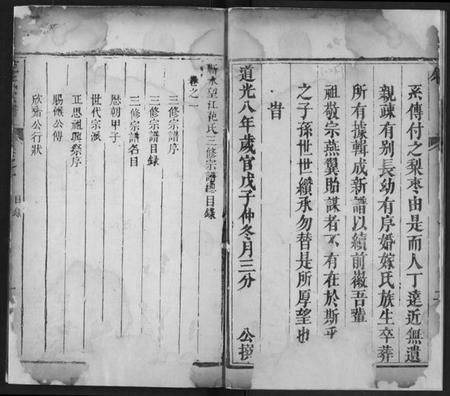 系傳付之梨枣由是而人丁遠近無遺
親疎有别長幼有序婚嫁氏族生卒葬
所有據輯成新譜以續前徽吾輩
祖敬宗燕翼貽謀者不有在於斯乎
之子孫世世纘承勿替是所厚望也
旹
道光八年歲宫戊子仲冬月三分 公撰
望江范氏三修宗譜總目錄
卷之一
三修宗譜序
三修宗譜目錄
三修宗譜名目
歷朝甲子
世代宗派
正思祖祭序
賜懷公傳
欣然公行狀
目錄